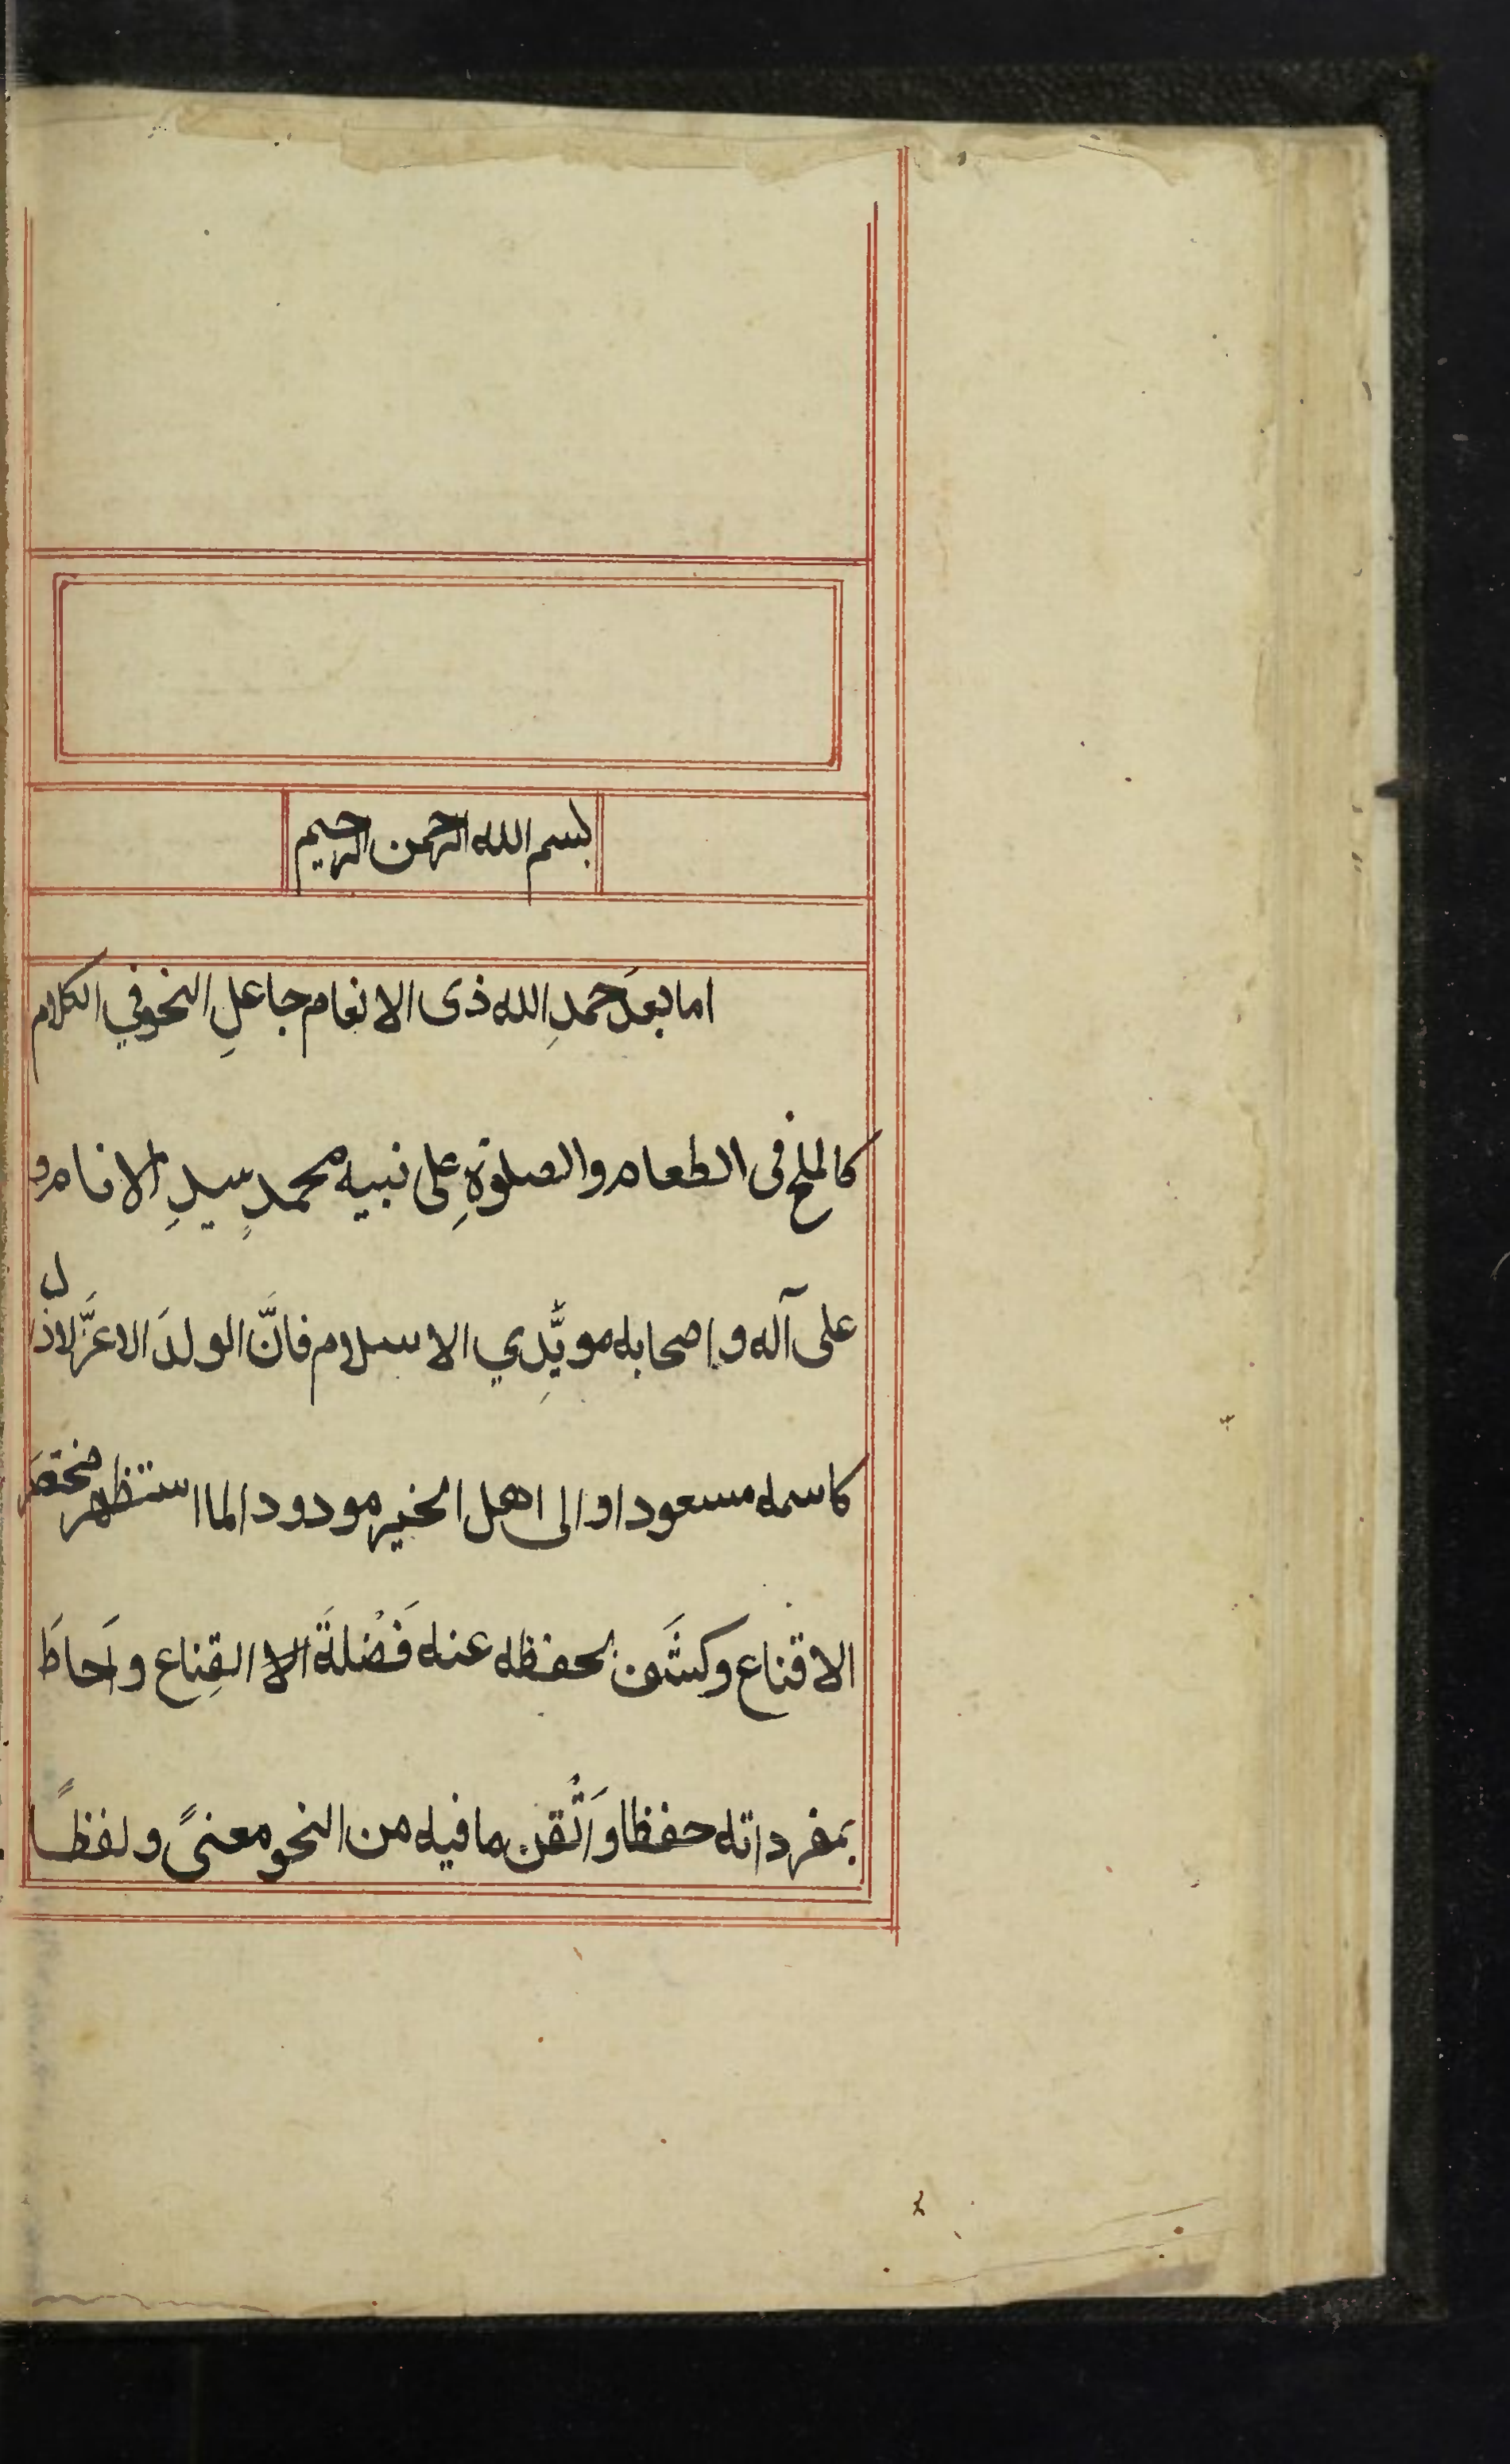 بسم الله الرحمن الرحيم
اما بعدَ حمدِ الله ذى الانعام جاعلِ النحو في الكلام
كالملح فى الطعام والصلوةِ على نبيه محمدٍ سيدِ الانام و
على آله و اصحابه مويِّدي الاسلام فانَّ الولدَ الاعزَّ لاذال
كاسمه مسعودا والى اهل الخير مودودا لما استظهر مختصَر
الاقناع وكشَف بحفظه عنه فَضْلةَ القِناع واَحاطَ
بمفرداته حفظا واَتْقن ما فيه من النحو معنىً ولفظًا